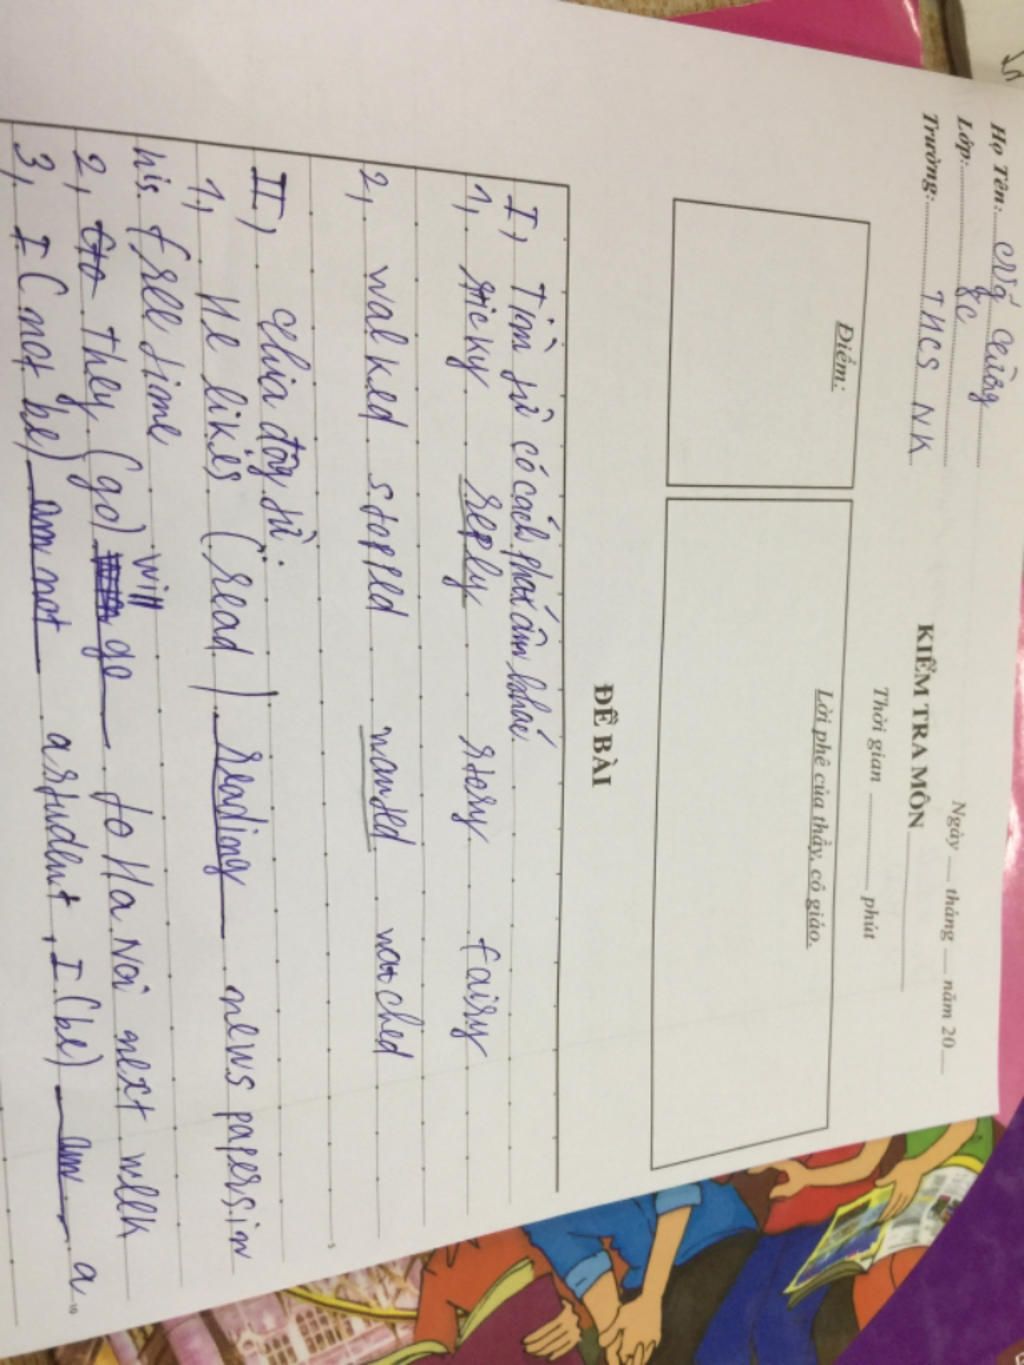 Họ Tên: Cường
Lớp: 8C
Trường: THCS NK
Ngày tháng năm 20
KIỂM TRA MÔN
Thời gian phút
Điểm:
Lời phê của thầy, cô giáo.
ĐỀ BÀI
I, Tìm từ có cách phát âm khác.
1, sticky reply story fairy
2, walked stopped wanted watched
II, Chia động từ.
1, He likes (read) reading news papers in
his free time
2, They (go) will go to Ha Noi next week
3, I (not be) am not a student, I (be) am a